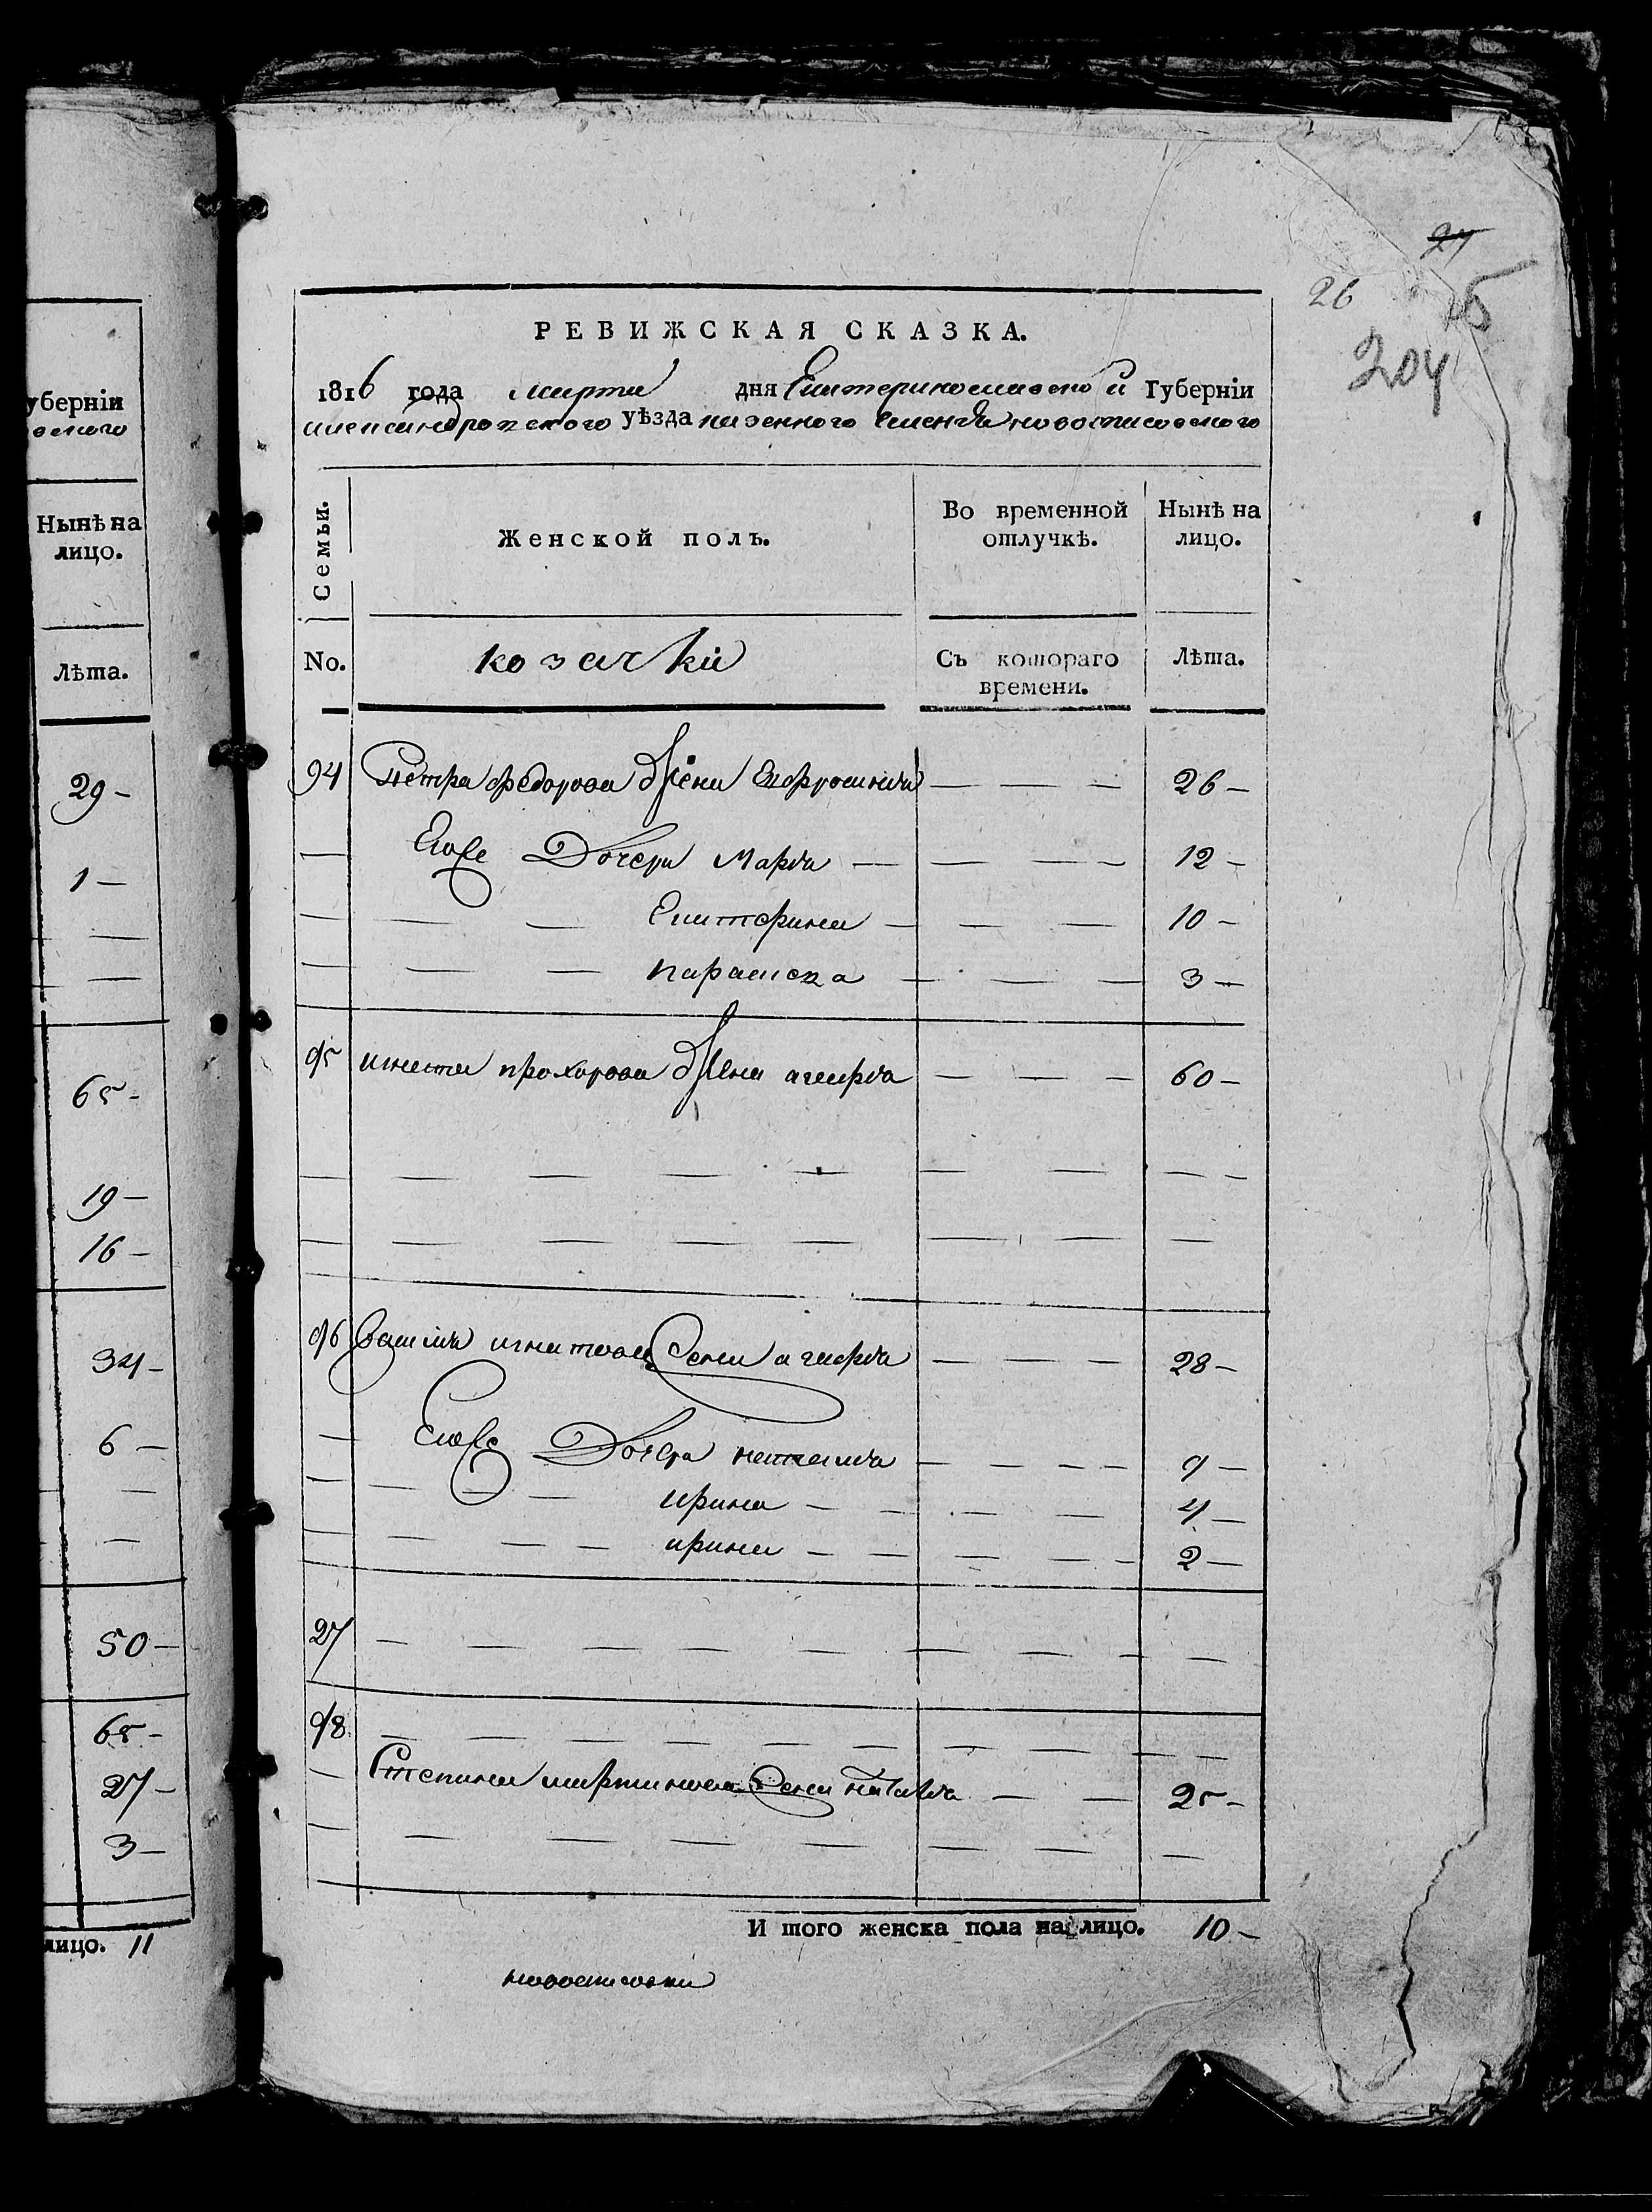 убернiи
вского
Нынѣ на
лицо.
Лѣта.
29 –
1 –
65 –
19 –
16 –
34 –
6 –
50 –
65 –
27 –
3 –
лицо. 11
27
26
25
204
РЕВИЖСКАЯ СКАЗКА.
1816 года марта дня Екатеринославской Губернiи
александровского уѣзда казенного селения новоспасовского
Семьи.
Женской полъ.
Во временной
отлучкѣ.
Нынѣ на
лицо.
No.
козачки
Съ котораго
времени.
Лѣта.
94 Петра федорова жена Ефросиния – – – 26 –
– Егоже Дочери Мария – – – – 12 –
– – – Екатерина – – – 10 –
– – – параска – – – 3 –
95 игната прохорова жена агафия – – – 60 –
96 василия игнатова жена агафия – – – 28 –
– Егоже Дочери наталия – – – – 9 –
– – – ирина – – – – 4 –
– – – – ирина – – – – – 2 –
97 – – – – – – – – –
98 – – – – – – – – – –
– Степана мартинова жена наталия – – 25 –
И того женска пола на лицо. 10 –
новоспасовки